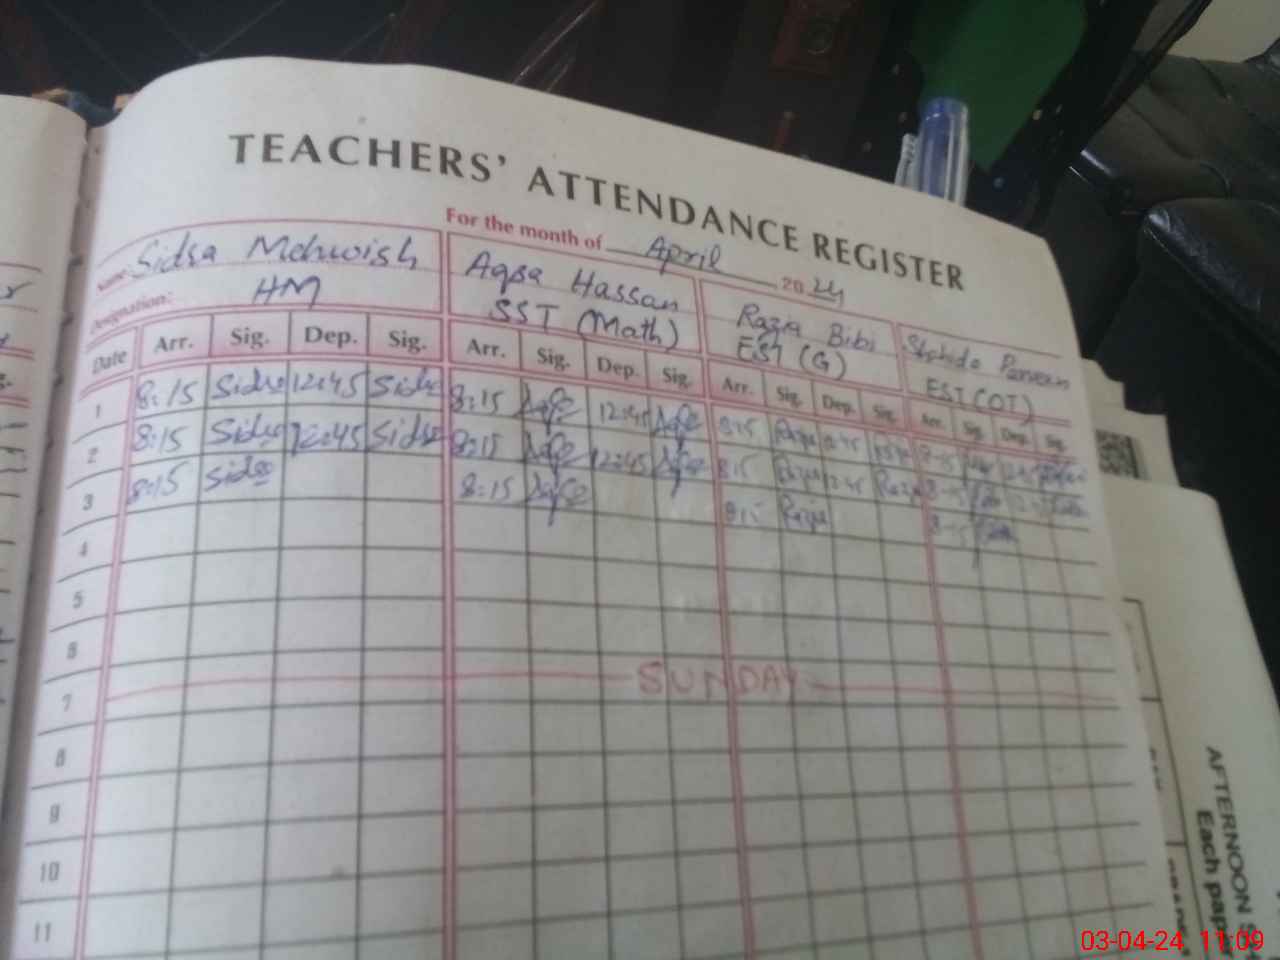 TEACHERS' ATTENDANCE REGISTER
For the month of April 2024
Name: Sidsa Mehwish Aqsa Hassan Razia Bibi Shahida Parveen
Designation: HM SST (Math) EST (G) EST (OT)
Date Arr. Sig. Dep. Sig. Arr. Sig. Dep. Sig. Arr. Sig. Dep. Sig. Arr. Sig. Dep. Sig.
1 8:15 Sidsa 12:45 Sidsa 8:15 Aqsa 12:45 Aqsa 8:15 Razia 12:45 Razia 8-15
2 8:15 Sidsa 12:45 Sidsa 8:15 Aqsa 12:45 Aqsa 8:15 Razia 12:45 Razia 8-15
3 8:15 Sidsa 8:15 Aqsa 8:15 Razia 8-15
4
5
6
7 SUNDAY
8
9
10
11
AFTERNOON
Each paper
03-04-24 11:09